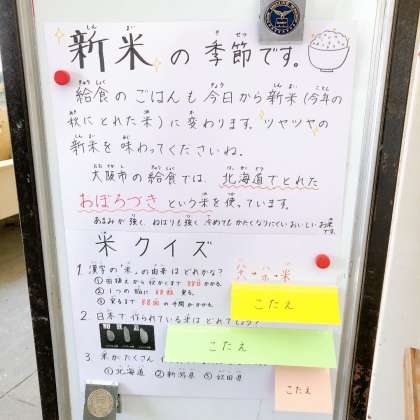 新米の季節です。
給食のごはんも今日から新米(今年の
秋にとれた米)に変わります。ツヤツヤの
新米を味わってくださいね。
大阪市の給食では、北海道でとれた
おぼろづきという米を使っています。
あまみが強く、ねばりも強く冷めてもかたくなりにくいおいしいお米
です。
米クイズ
1. 漢字の「米」の由来はどれかな?
① 田植えから収かくまで88日かかる。
② 1つの穂に88粒実る。
③ 実るまで88回の手間がかかる。
こたえ
2. 日本で作られている米はどれでしょう?
こたえ
3. 米がたくさん
① 北海道 ② 新潟県 ③ 秋田県
こたえ